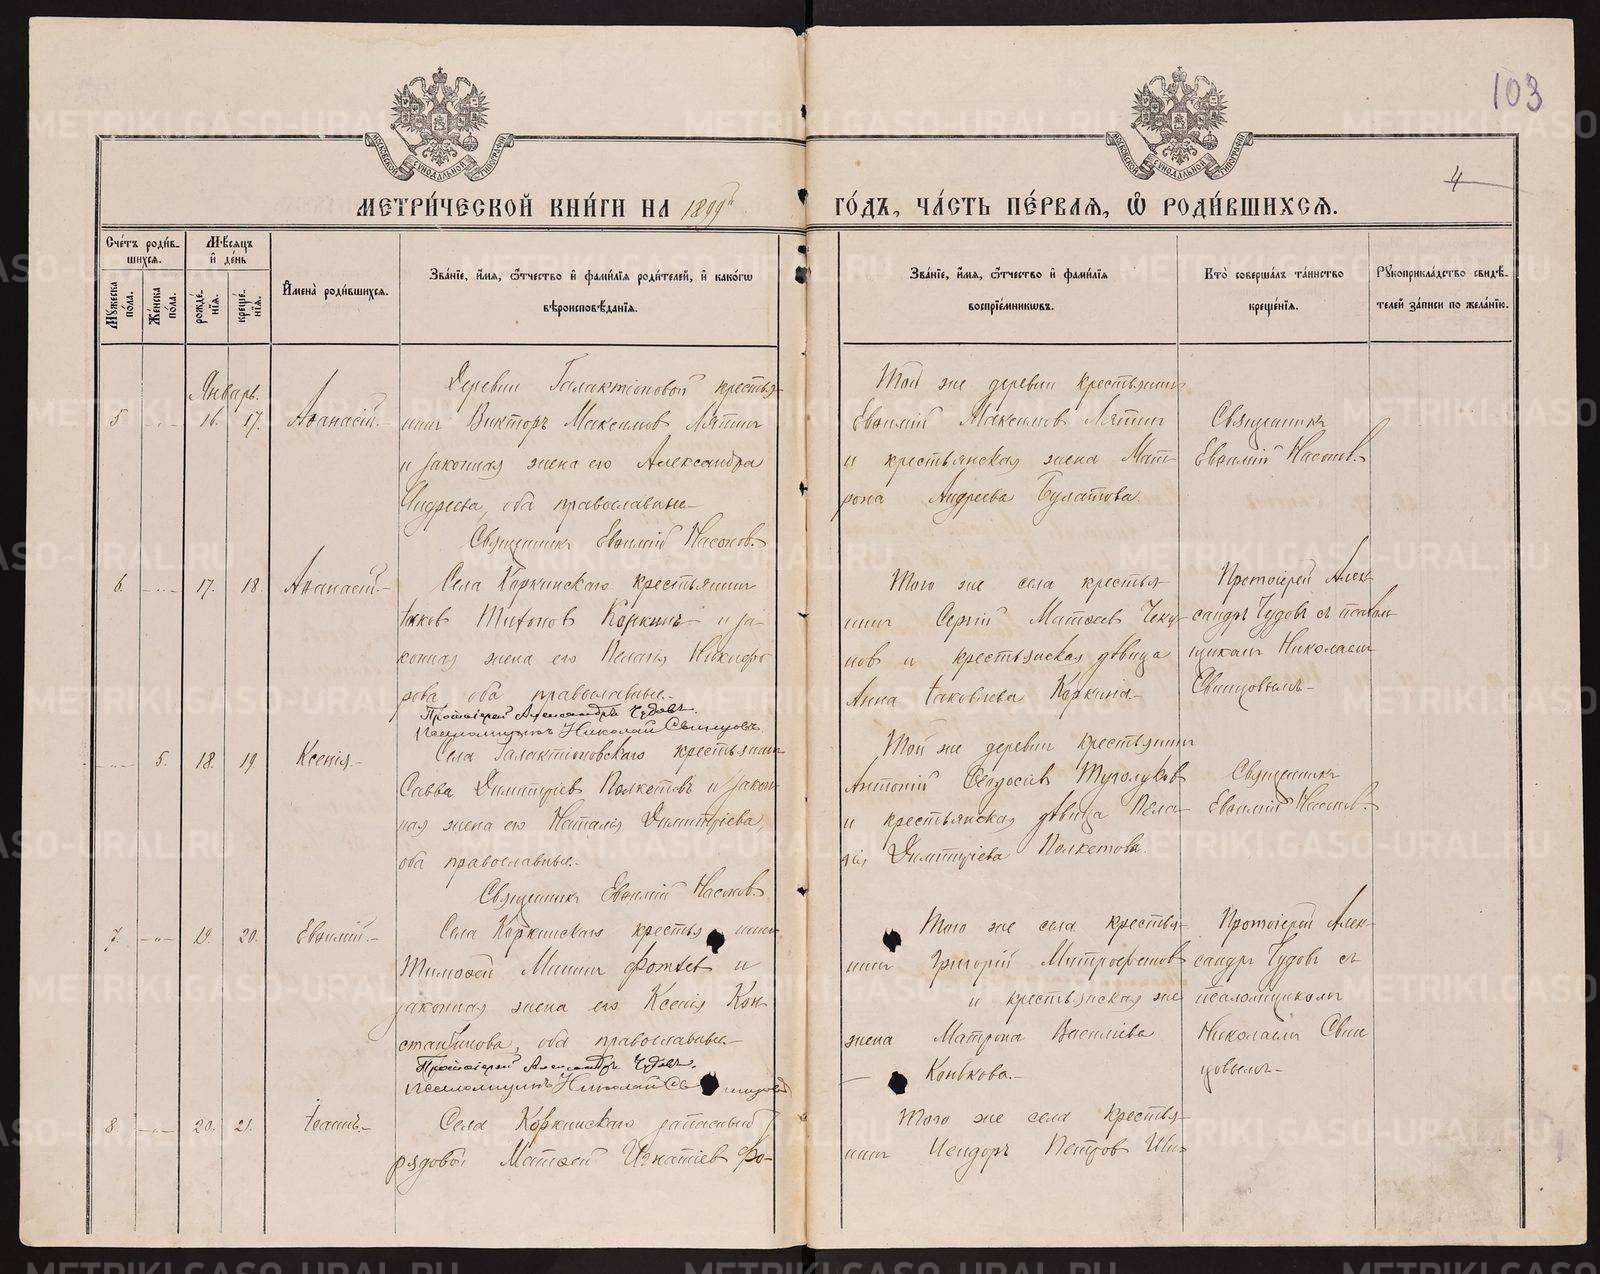 103
4
МОСКОВСКОЙ СѴНОДАЛЬНОЙ ТИПОГРАФІИ
МОСКОВСКОЙ СѴНОДАЛЬНОЙ ТИПОГРАФІИ
МЕТРИ́ЧЕСКОЙ КНИ́ГИ НА 1899й
ГО́ДЪ, ЧА́СТЬ ПЕ́РВАЯ, Ѡ҆ РОДИ́ВШИХСЯ.
Сче́тъ роди́в-
шихся.
Мѣ́сяцъ
и҆ де́нь
Мꙋжеска по́ла.
Же́нска по́ла.
рожде́-нїя.
креще́-нїя.
И҆мена̀ роди́вшихся.
Зва́нїе, и҆́мя, ѻ҆́тчество и҆ фами́лїя роди́телей, и҆ како́гѡ
вѣроисповѣ́данїя.
Зва́нїе, и҆́мя, ѻ҆́тчество и҆ фами́лїя
воспрїе́мникѡвъ.
Кто̀ соверша́лъ та́инство
креще́нїя.
Рꙋкоприкла́дство свидѣ́-
телей за́писи по жела́нїю.
Январь.
5 16. 17. Аѳанасій.
Деревни Галактіоновой крестья-
нинъ Викторъ Максимовъ Лятинъ
и законная жена его Александра
Андреева, оба православные
Священникъ Евѳимій Насоновъ.
Той же деревни крестьянинъ
Евѳимій Максимовъ Лятинъ
и крестьянская жена Мат-
рона Андреева Булатова.
Священникъ
Евѳимій Насоновъ.
6. 17. 18. Аѳанасій.
Села Коркинскаго крестьянинъ
Іаковъ Тихоновъ Коркинъ и за-
конная жена его Пелагія Никифо-
рова оба православные.
Протоіерей Александръ Чудовъ.
Псаломщикъ Николай Свинцовъ
Того же села крестья-
нинъ Сергій Матѳеевъ Чеку-
новъ и крестьянская дѣвица
Анна Іаковлева Коркина.
Протоіерей Алек-
сандръ Чудовъ съ псалом-
щикомъ Николаемъ
Свинцовымъ.
5. 18. 19 Ксенія.
Села Галактіоновскаго крестьянинъ
Савва Димитріевъ Полкетовъ и закон-
ная жена его Наталія Димитріева,
оба православные.
Священникъ Евѳимій Насоновъ.
Той же деревни крестьянинъ
Антоній Ѳеодосіевъ Туголуковъ
и крестьянская дѣвица Пела-
гія Димитріева Полкетова.
Священникъ
Евѳимій Насоновъ.
7. 19. 20. Евѳимій.
Села Коркинскаго крестья нинъ
Тимоѳей Мининъ Фотѣевъ и
законная жена его Ксенія Кон-
стантинова, оба православные.
Протоіерей Александръ Чудовъ.
псаломщикъ Николай Св инцовъ
Того же села крестья-
нинъ Григорій Митрофановъ
и крестьянская же
жена Матрона Василіева
Конькова.
Протоіерей Алек-
сандръ Чудовъ съ
псаломщикомъ
Николаемъ Свин
цовымъ.
8. 20. 21. Іоаннъ.
Села Коркинскаго запасный
рядовой Матѳей Игнатіевъ Фо-
Того же села крестья-
нинъ Петровъ